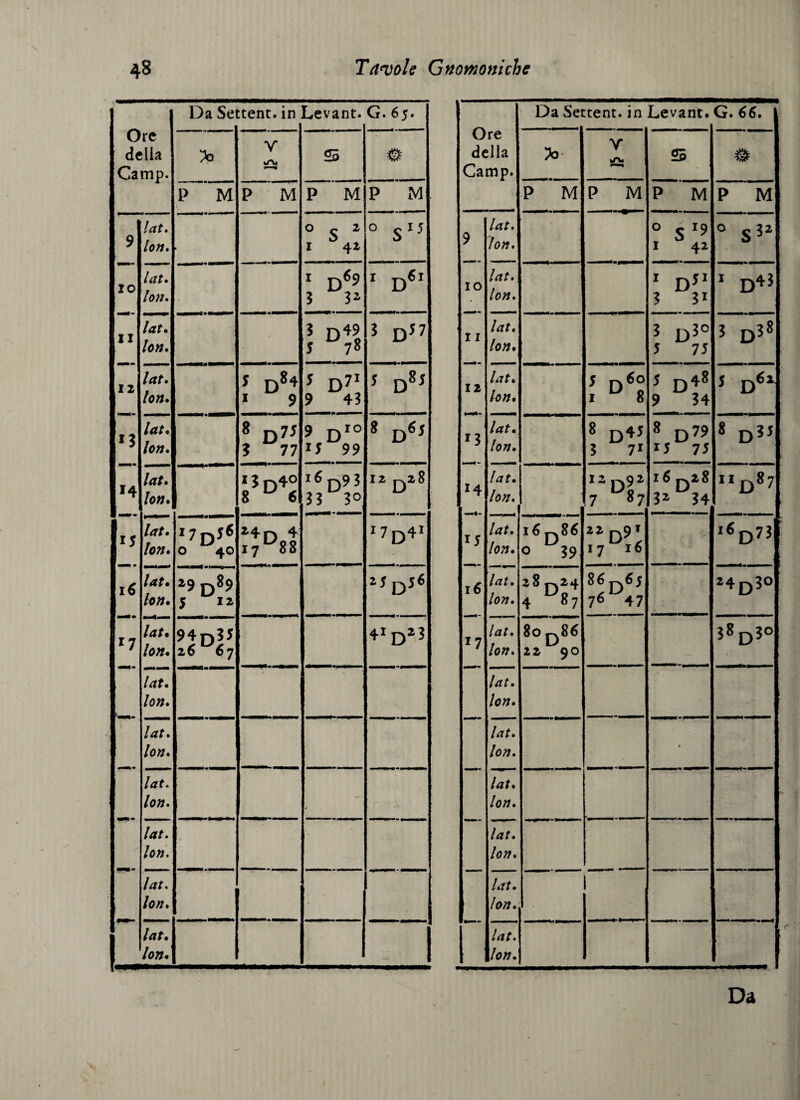 48 Tavole Gnomoniche
Ore della Camp. | Da Settent. in Levant. G. 65.
♑ | ♈ ♎ | ♋ | ☼
P M | P M | P M | P M
9 | lat. | | | 0 S 2 | 0 S 15
lon. | | | 1 42 |
10 | lat. | | | 1 D 69 | 1 D 61
lon. | | | 3 32 |
11 | lat. | | | 3 D 49 | 3 D 57
lon. | | | 5 78 |
12 | lat. | | 5 D 84 | 5 D 71 | 5 D 85
lon. | | 1 9 | 9 43 |
13 | lat. | | 8 D 75 | 9 D 10 | 8 D 65
lon. | | 3 77 | 15 99 |
14 | lat. | | 13 D 40 | 16 D 93 | 12 D 28
lon. | | 8 6 | 33 30 |
15 | lat. | 17 D 56 | 24 D 4 | | 17 D 41
lon. | 0 40 | 17 88 | |
16 | lat. | 29 D 89 | | | 25 D 56
lon. | 5 12 | | |
17 | lat. | 94 D 35 | | | 41 D 23
lon. | 26 67 | | |
lat.
lon.
lat.
lon.
lat.
lon.
lat.
lon.
lat.
lon.
lat.
lon.
Ore della Camp. | Da Settent. in Levant. G. 66.
♑ | ♈ ♎ | ♋ | ☼
P M | P M | P M | P M
9 | lat. | | | 0 S 19 | 0 S 32
lon. | | | 1 42 |
10 | lat. | | | 1 D 51 | 1 D 43
lon. | | | 3 31 |
11 | lat. | | | 3 D 30 | 3 D 38
lon. | | | 5 75 |
12 | lat. | | 5 D 60 | 5 D 48 | 5 D 62
lon. | | 1 8 | 9 34 |
13 | lat. | | 8 D 45 | 8 D 79 | 8 D 35
lon. | | 3 71 | 15 75 |
14 | lat. | | 12 D 92 | 16 D 28 | 11 D 87
lon. | | 7 87 | 32 34 |
15 | lat. | 16 D 86 | 22 D 91 | | 16 D 73
lon. | 0 39 | 17 16 | |
16 | lat. | 28 D 24 | 86 D 65 | | 24 D 30
lon. | 4 87 | 76 47 | |
17 | lat. | 80 D 86 | | | 38 D 30
lon. | 22 90 | | |
lat.
lon.
lat.
lon.
lat.
lon.
lat.
lon.
lat.
lon.
lat.
lon.
Da